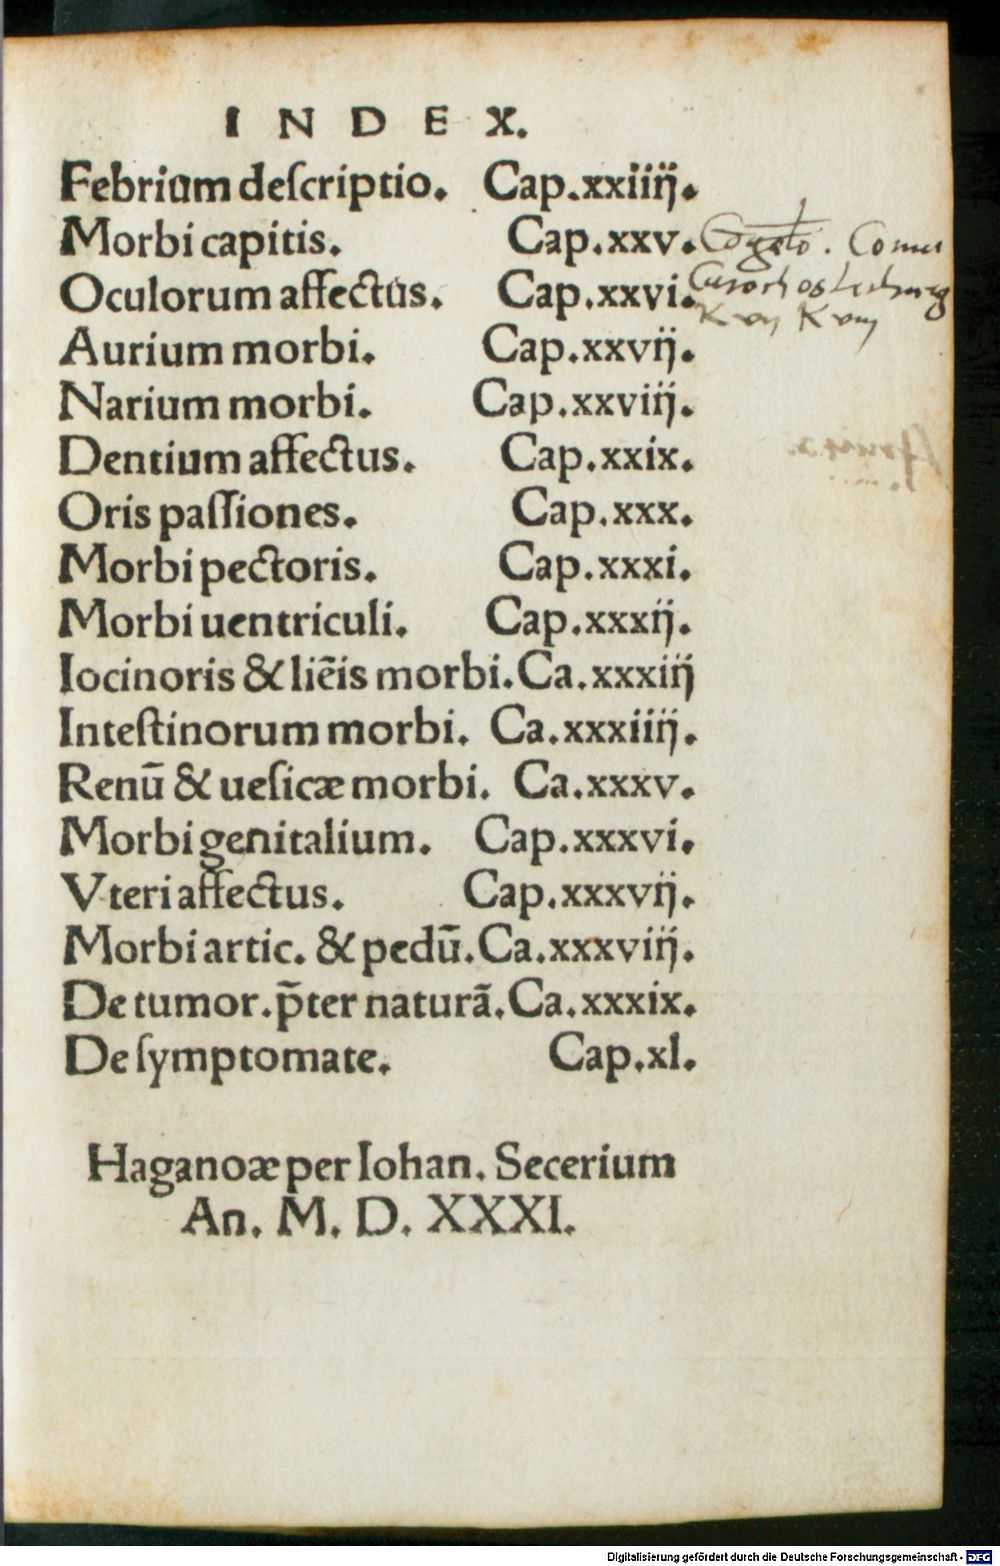 INDEX.
Febrium deſcriptio. Cap.xxiiij.
Morbi capitis. Cap.xxv.
Oculorum affectus. Cap.xxvi.
Aurium morbi. Cap.xxvij.
Narium morbi. Cap.xxviij.
Dentium affectus. Cap.xxix.
Oris paſſiones. Cap.xxx.
Morbi pectoris. Cap.xxxi.
Morbi uentriculi. Cap.xxxij.
Iocinoris & liēis morbi. Ca.xxxiij
Inteſtinorum morbi. Ca.xxxiiij.
Renū & ueſicæ morbi. Ca.xxxv.
Morbi genitalium. Cap.xxxvi.
Vteri affectus. Cap.xxxvij.
Morbi artic. & pedū. Ca.xxxviij.
De tumor. p̄ter naturā. Ca.xxxix.
De ſymptomate. Cap.xl.
Haganoæ per Iohan. Secerium
An. M. D. XXXI.
Digitalisierung gefördert durch die Deutsche Forschungsgemeinschaft - DFG